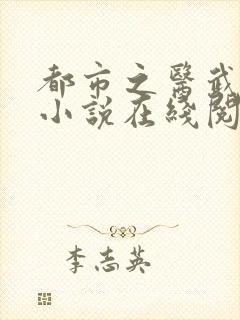 都市之醫武
小說在綫閱
李志英